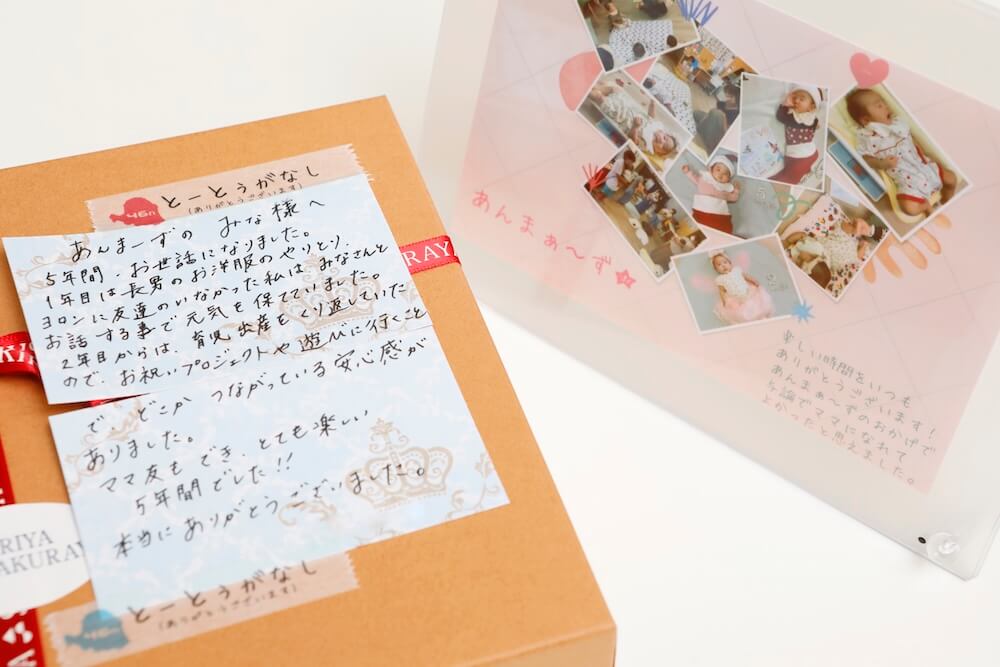 とーとぅがなし
(ありがとうございます)
あんまーずの みな様へ
5年間、お世話になりました。
1年目は長男のお洋服のやりとり、
ヨロンに友達のいなかった私は、みなさんと
お話する事で元気を保てていました。
2年目からは、育児、出産をくり返していた
ので、お祝いプロジェクトや遊びに行くこと
で、どこか つながっている安心感が
ありました。
ママ友もでき、とても楽しい
5年間でした!!
本当にありがとうございました。
とーとぅがなし
(ありがとうございます)
RAY
KIS
RIYA
AKURAY
あんまぁ〜ず☆
楽しい時間をいつも
ありがとうございます!
あんまぁ〜ずのおかげで
与論でママになれて
よかったと思えました。